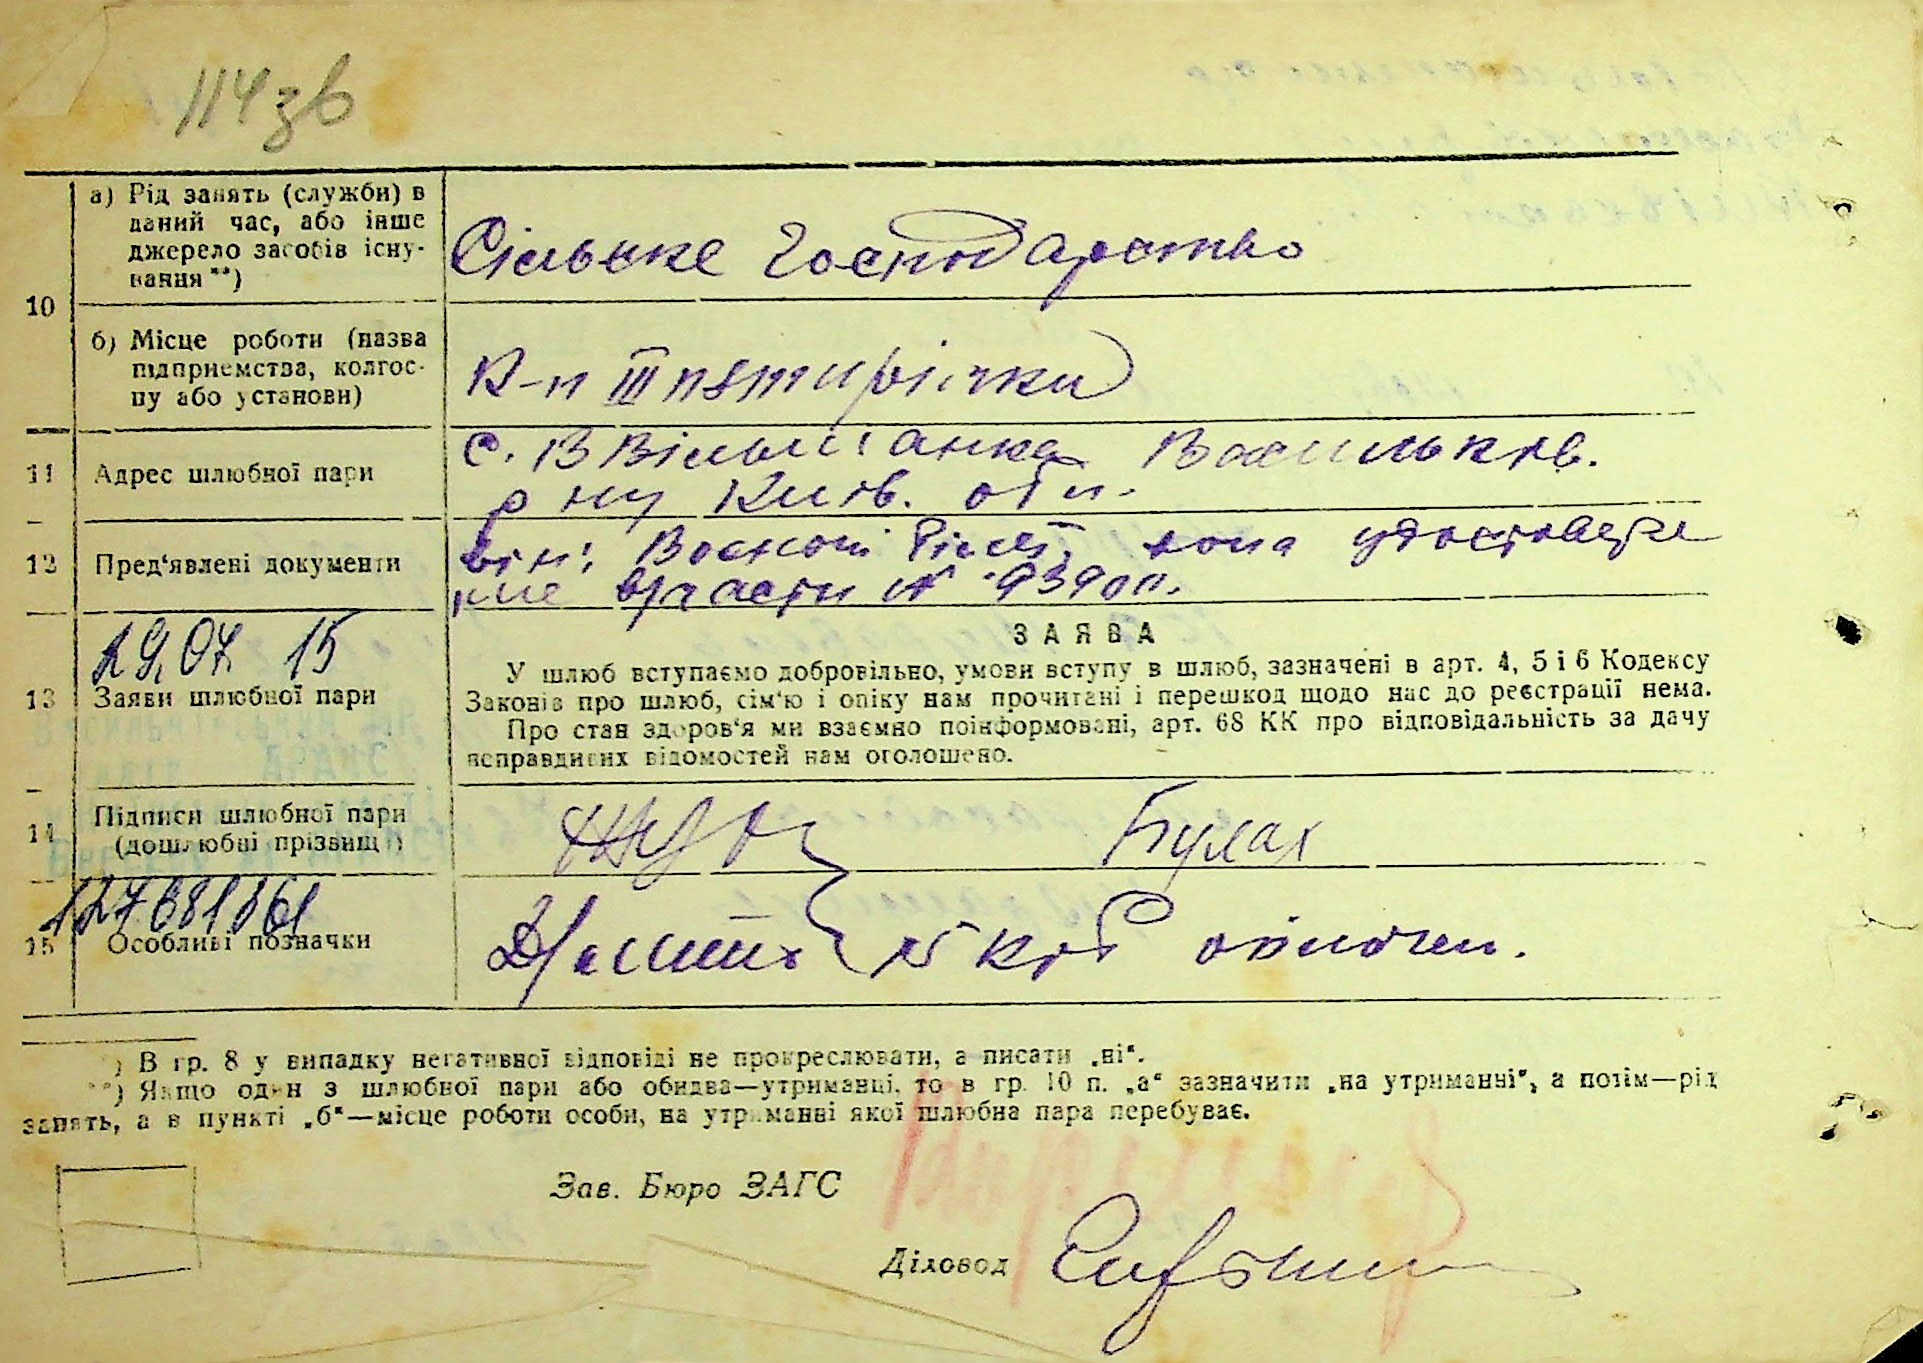 114зв
а) Рід занять (служби) в
даний час, або інше
джерело засобів існу-
вання **)
Сільське Господарство
10
б) Місце роботи (назва
підприємства, колгос-
пу або установи)
К-п III пятирічки
11 Адрес шлюбної пари
с. В Вільшанка Васильків.
р ну Київ. обл.
12 Пред‘явлені документи
він: Воєнний вона удостовере
ние № 9390п.
19.07 15
13 Заяви шлюбної пари
ЗАЯВА
У шлюб вступаємо добровільно, умови вступу в шлюб, зазначені в арт. 4, 5 і 6 Кодексу
Законів про шлюб, сім‘ю і опіку нам прочитані і перешкод щодо нас до реєстрації нема.
Про стан здоров‘я ми взаємно поінформовані, арт. 68 КК про відповідальність за дачу
неправдивих відомостей нам оголошено.
14 Підписи шлюбної пари
(дошлюбні прізвища)
Булах
127681861
15 Особливі позначки
15 крб
*) В гр. 8 у випадку негативної відповіді не прокреслювати, а писати „ні“.
**) Якщо один з шлюбної пари або обидва—утриманці, то в гр. 10 п. „а“ зазначити „на утриманні“, а потім—рід
занять, а в пункті „б“—місце роботи особи, на утриманні якої шлюбна пара перебуває.
Зав. Бюро ЗАГС
Діловод